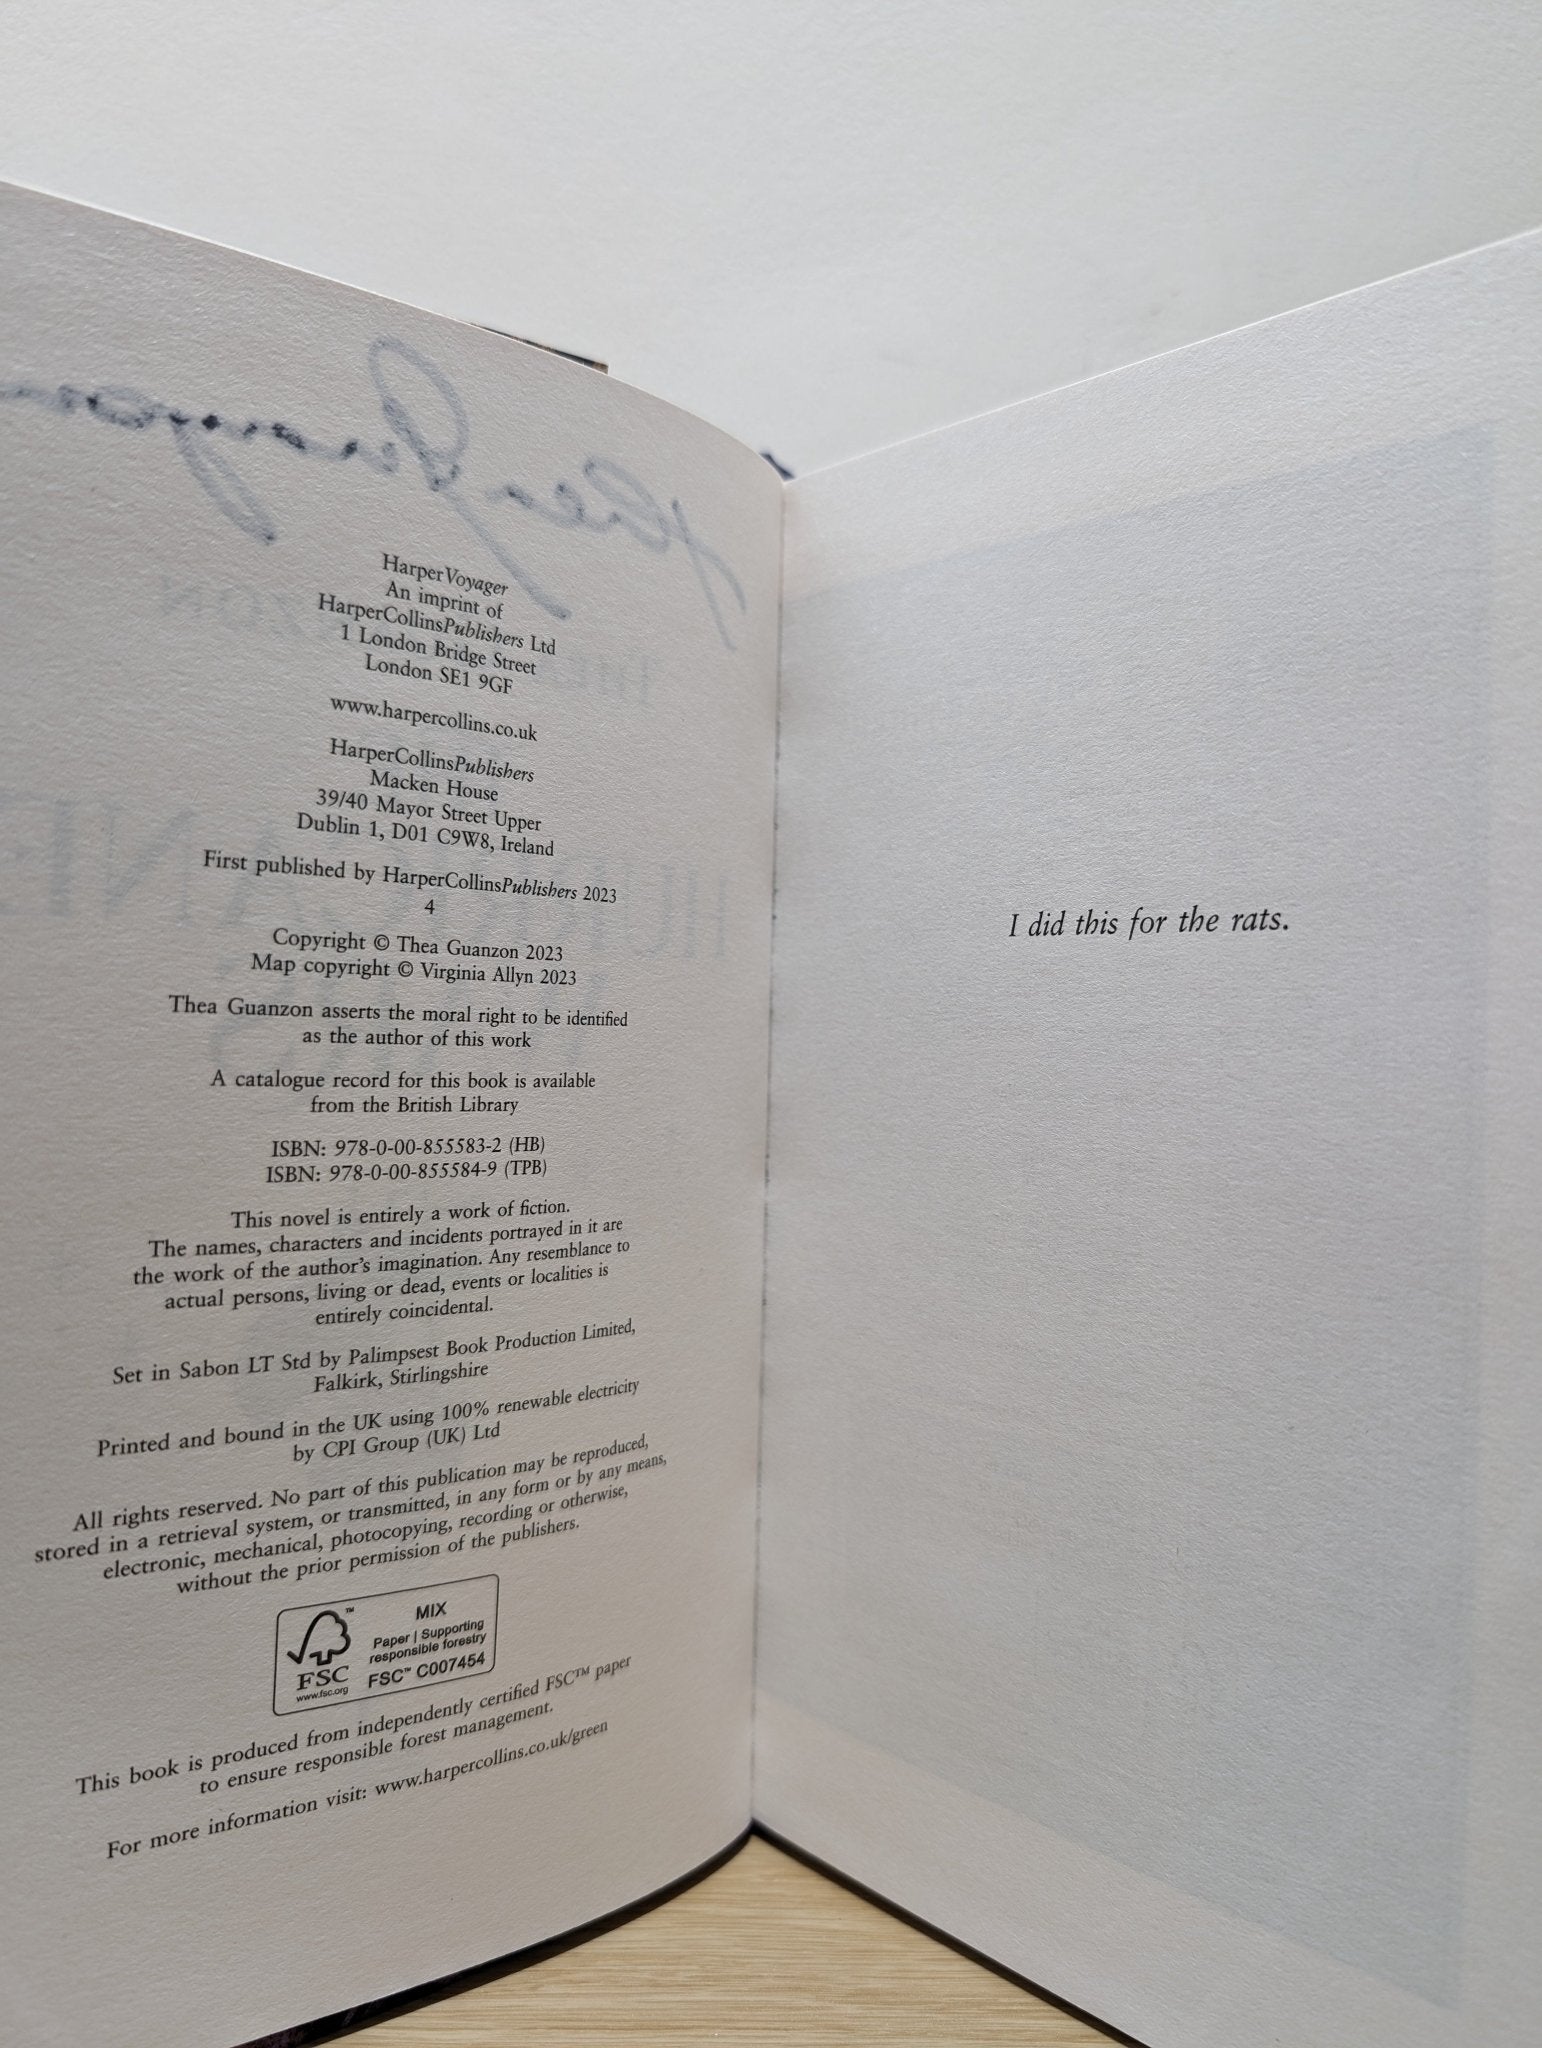 HarperVoyager
An imprint of
HarperCollinsPublishers Ltd
1 London Bridge Street
London SE1 9GF
www.harpercollins.co.uk
HarperCollinsPublishers
Macken House
39/40 Mayor Street Upper
Dublin 1, D01 C9W8, Ireland
First published by HarperCollinsPublishers 2023
4
Copyright © Thea Guanzon 2023
Map copyright © Virginia Allyn 2023
Thea Guanzon asserts the moral right to be identified
as the author of this work
A catalogue record for this book is available
from the British Library
ISBN: 978-0-00-855583-2 (HB)
ISBN: 978-0-00-855584-9 (TPB)
This novel is entirely a work of fiction.
The names, characters and incidents portrayed in it are
the work of the author's imagination. Any resemblance to
actual persons, living or dead, events or localities is
entirely coincidental.
Set in Sabon LT Std by Palimpsest Book Production Limited,
Falkirk, Stirlingshire
Printed and bound in the UK using 100% renewable electricity
by CPI Group (UK) Ltd
All rights reserved. No part of this publication may be reproduced,
stored in a retrieval system, or transmitted, in any form or by any means,
electronic, mechanical, photocopying, recording or otherwise,
without the prior permission of the publishers.
FSC
www.fsc.org
MIX
Paper | Supporting
responsible forestry
FSC™ C007454
This book is produced from independently certified FSC™ paper
to ensure responsible forest management.
For more information visit: www.harpercollins.co.uk/green
I did this for the rats.